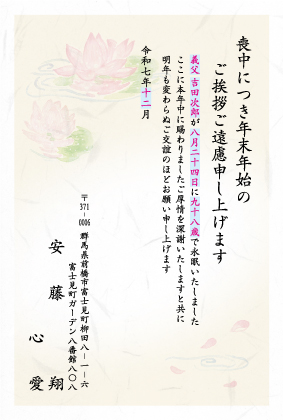 喪中につき年末年始の
ご挨拶ご遠慮申し上げます
義父 吉田次郎が八月二十四日に九十八歳で永眠いたしました
ここに本年中に賜わりましたご厚情を深謝いたしますと共に
明年も変わらぬご交誼のほどお願い申し上げます
令和七年十二月
〒371-0006 群馬県前橋市富士見町柳田八-一-六
富士見町ガーデン八番館八〇八
安藤 翔
心愛